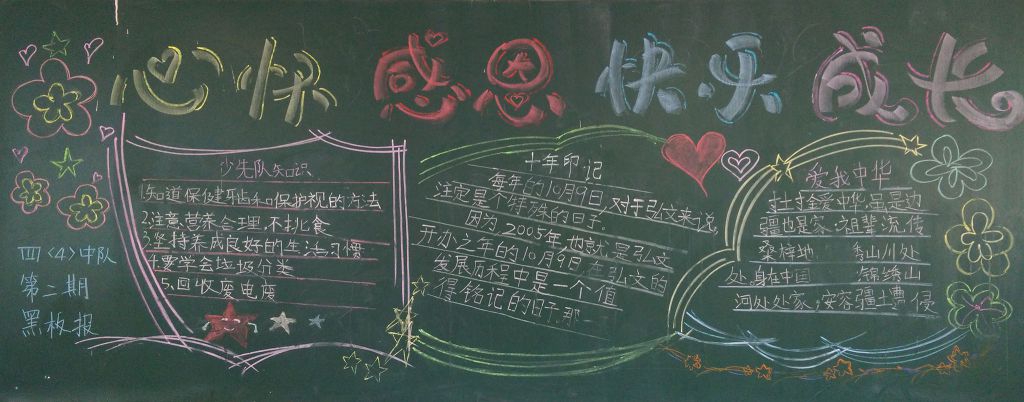 心怀感恩 快乐成长
四<4>中队
第二期
黑板报
少先队知识
1.知道保健牙齿和保护视的方法
2.注意营养合理,不挑食
3.坚持养成良好的生活习惯
4.要学会垃圾分类
5.回收废电废
十年印记
每年的10月9日,对于弘文来说,
注定是不特殊的日子。
因为2005年也就是弘文
开办之年的10月9日在弘文的
发展历程中是一个值
得铭记的日子,那一
爱我中华
爱中华,虽是边
疆也是家,祖辈流传
桑梓地 秀山川处
处,身在中国 锦绣山
河处处家,安容疆土遭侵